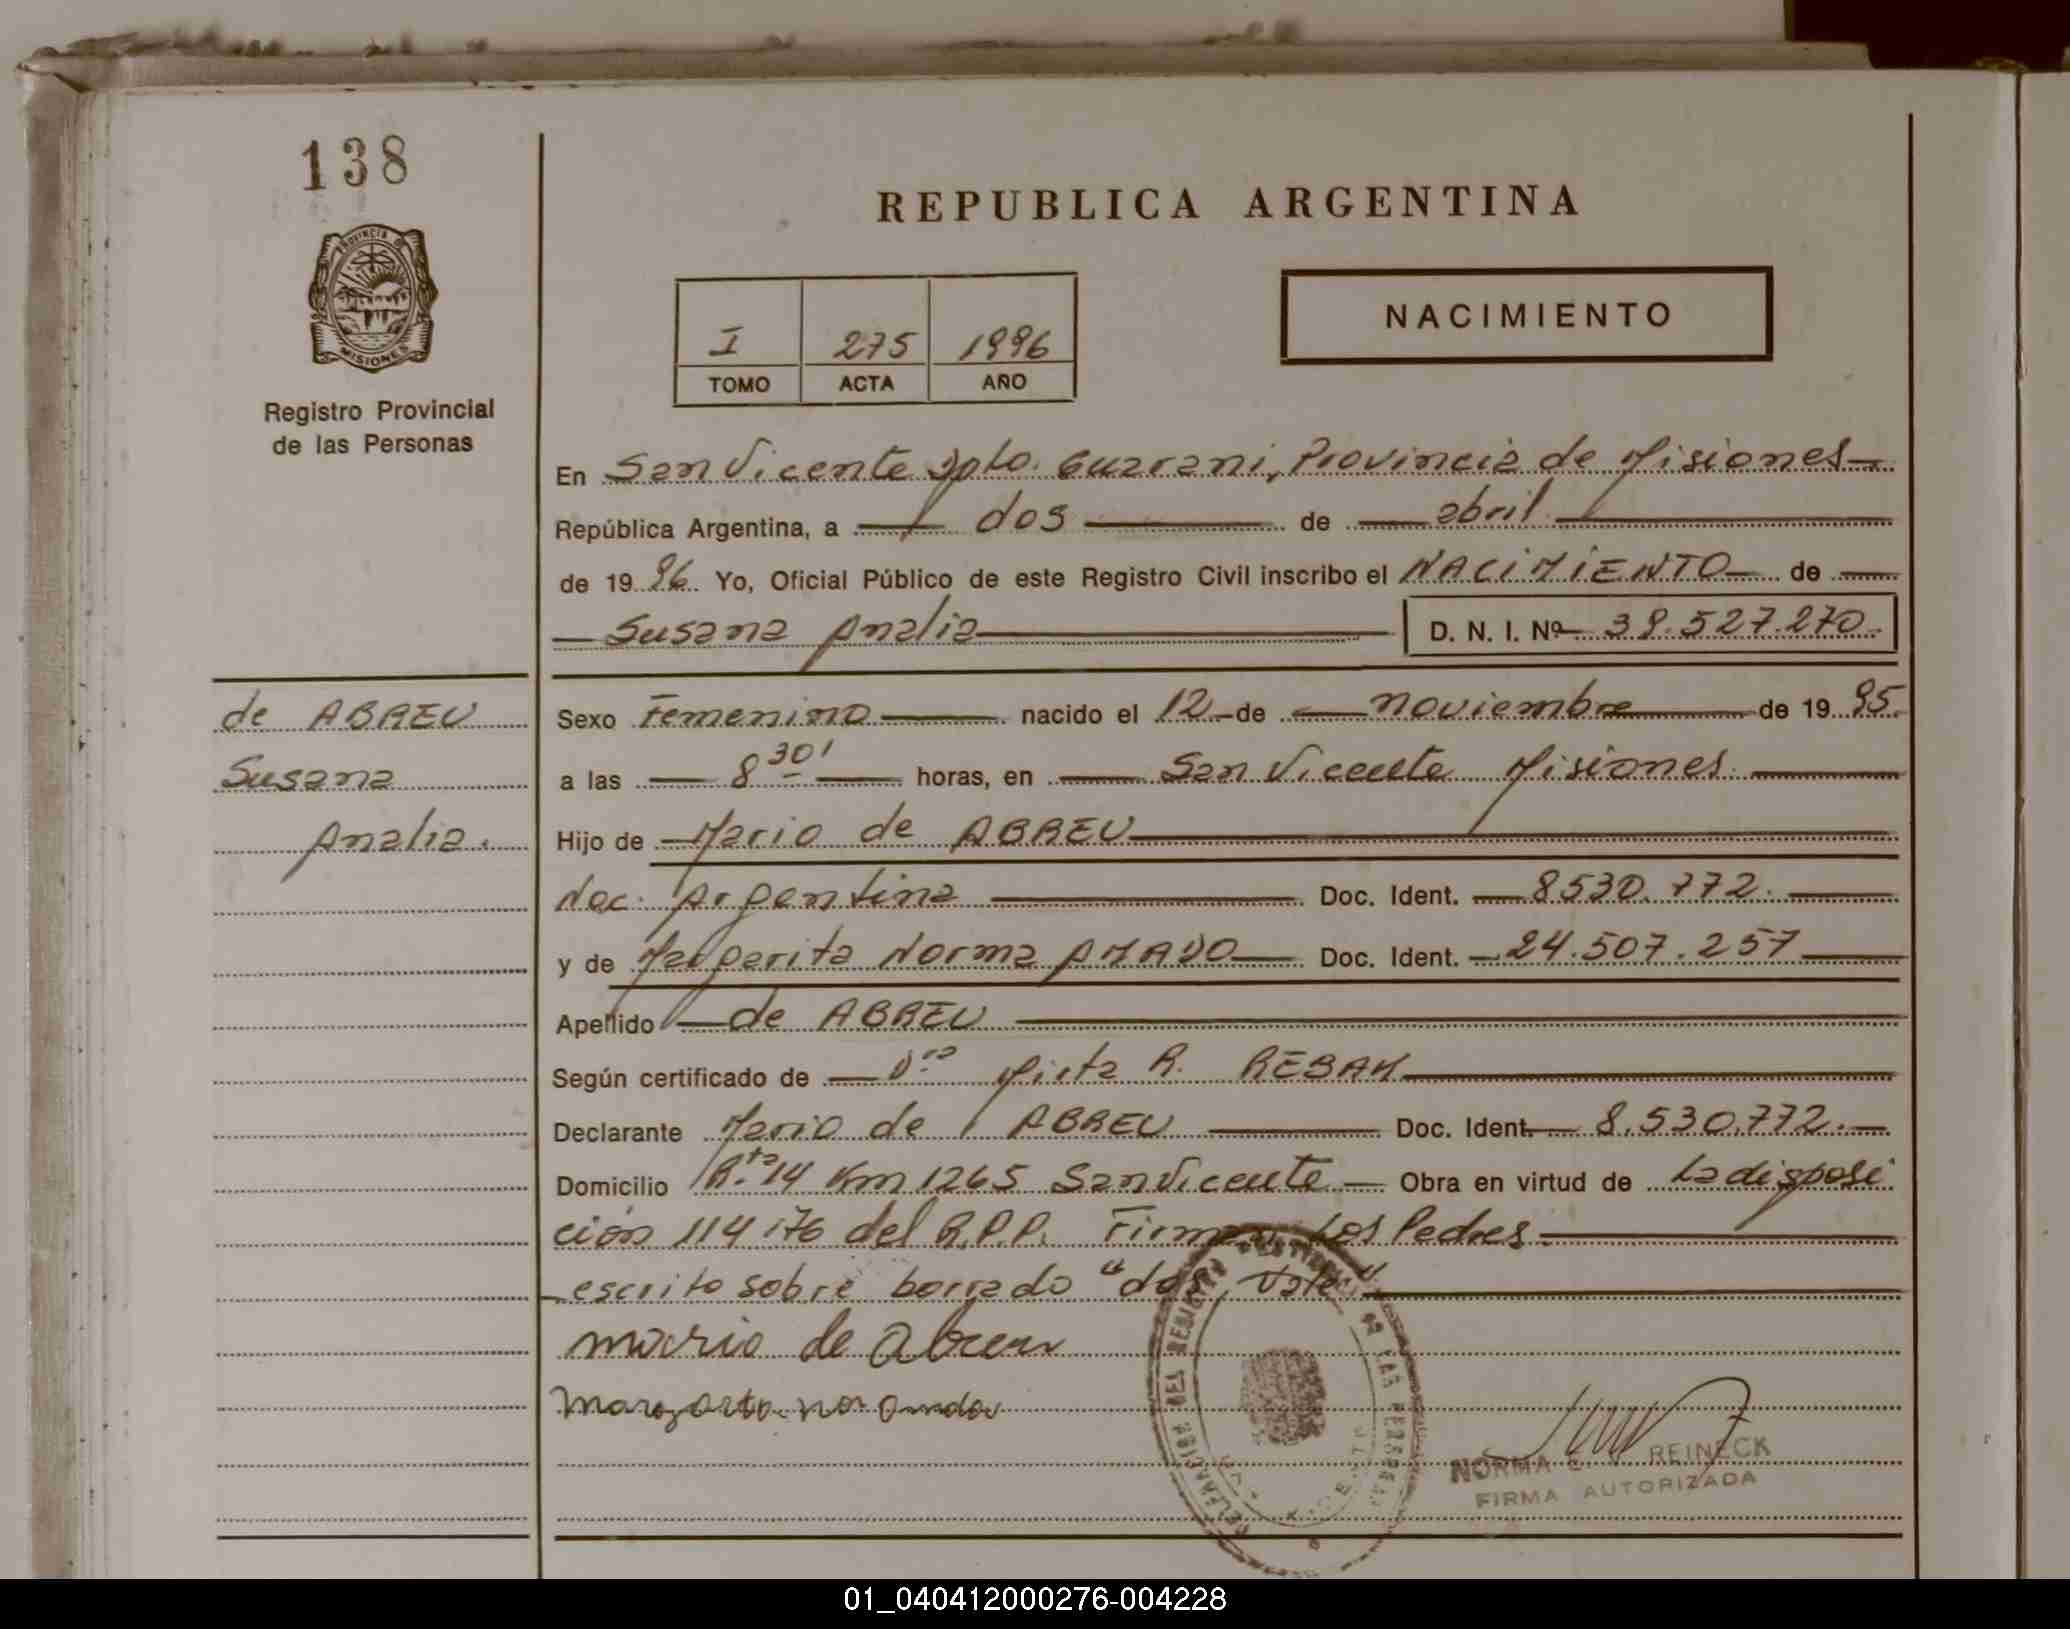 138
REPUBLICA ARGENTINA
PROVINCIA DE
MISIONES
Registro Provincial
de las Personas
I 275 1996
TOMO ACTA AÑO
NACIMIENTO
En San Vicente Dpto. Guarani, Provincia de Misiones
República Argentina, a dos de abril
de 1996 Yo, Oficial Público de este Registro Civil inscribo el NACIMIENTO de
Susana Analia D. N. I. Nº 39.527.270
de ABREU
Susana
Analia.
Sexo Femenino nacido el 12 de noviembre de 1995.
a las 8 30' horas, en San Vicente Misiones.
Hijo de Mario de ABREU
Nac. Argentina Doc. Ident. 8530.772.
y de Margarita Norma AMADO Doc. Ident. 24.507.257
Apellido de ABREU
Según certificado de Dra Mirta R. REBAK
Declarante Mario de ABREU Doc. Ident. 8.530.772.
Domicilio Rta. 14 Km 1265 San Vicente Obra en virtud de La disposi
ción 114/76 del R.P.P. Firman Los Padres.
escrito sobre borrado "dos, Vale"
mario de abreu
NORMA REINECK
FIRMA AUTORIZADA
01_040412000276-004228